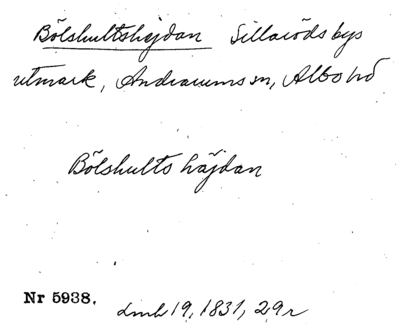 Bölshultshöjdan Sillaröds bys
utmark, Andrarums sn, Albo hd
Bölshults häjdan
Nr 5938.
lmh 19, 1831, 29r